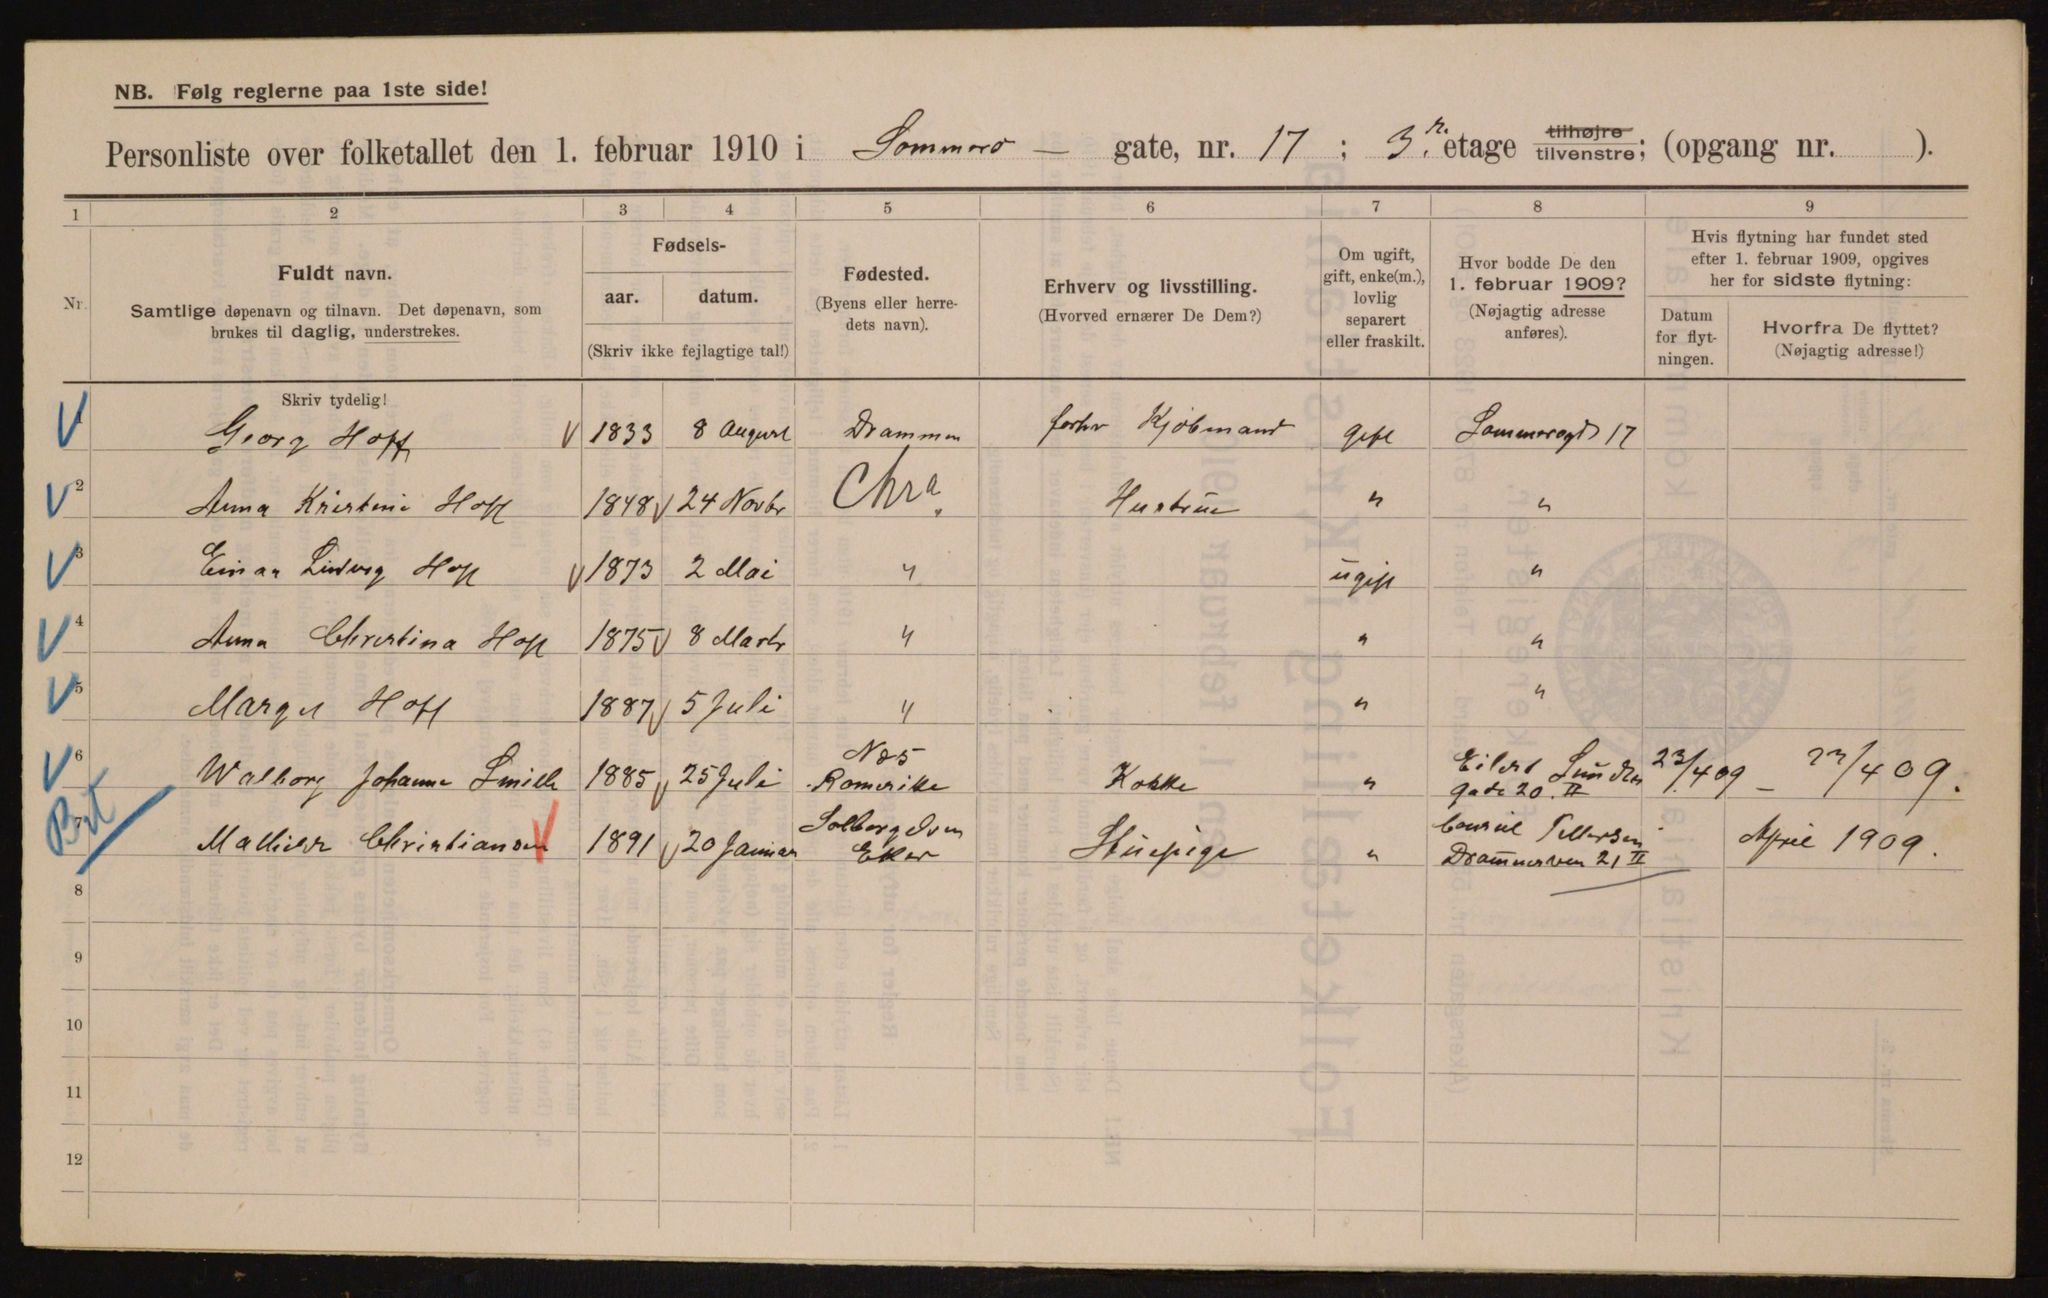 NB. Følg reglerne paa 1ste side!
Personliste over folketallet den 1. februar 1910 i Sommero — gate, nr. 17 ; 3. etage tilhøjre tilvenstre; (opgang nr. ).
1 2 3 4 5 6 7 8 9
Nr.
Fuldt navn.
Samtlige døpenavn og tilnavn. Det døpenavn, som
brukes til daglig, understrekes.
Fødsels-
aar. datum.
(Skriv ikke fejlagtige tal!)
Fødested.
(Byens eller herre-
dets navn).
Erhverv og livsstilling.
(Hvorved ernærer De Dem?)
Om ugift,
gift, enke(m.),
lovlig
separert
eller fraskilt.
Hvor bodde De den
1. februar 1909?
(Nøjagtig adresse
anføres).
Hvis flytning har fundet sted
efter 1. februar 1909, opgives
her for sidste flytning:
Datum
for flyt-
ningen.
Hvorfra De flyttet?
(Nøjagtig adresse!)
Skriv tydelig!
1 Georg Hoff 1833 8 August Drammen forhv Kjøbmand gift Sommerogd 17
2 Anna Kristine Hoff 1848 24 Novbr Chra. Hustrue " "
3 Einar Ludvig Hoff 1873 2 Mai " ugift "
4 Anna Christina Hoff 1875 8 Marts " " "
5 Margit Hoff 1887 5 Juli " " "
6 Walborg Johanne 1885 25 Juli Næs Romerike Kokke " Eilert Sundts gade 20. II 23/4 09 — 23/4 09.
Bet
7 Christiansen 1891 20 Januar Eker Stuepige " Drammensven 21 II April 1909.
8
9
10
11
12